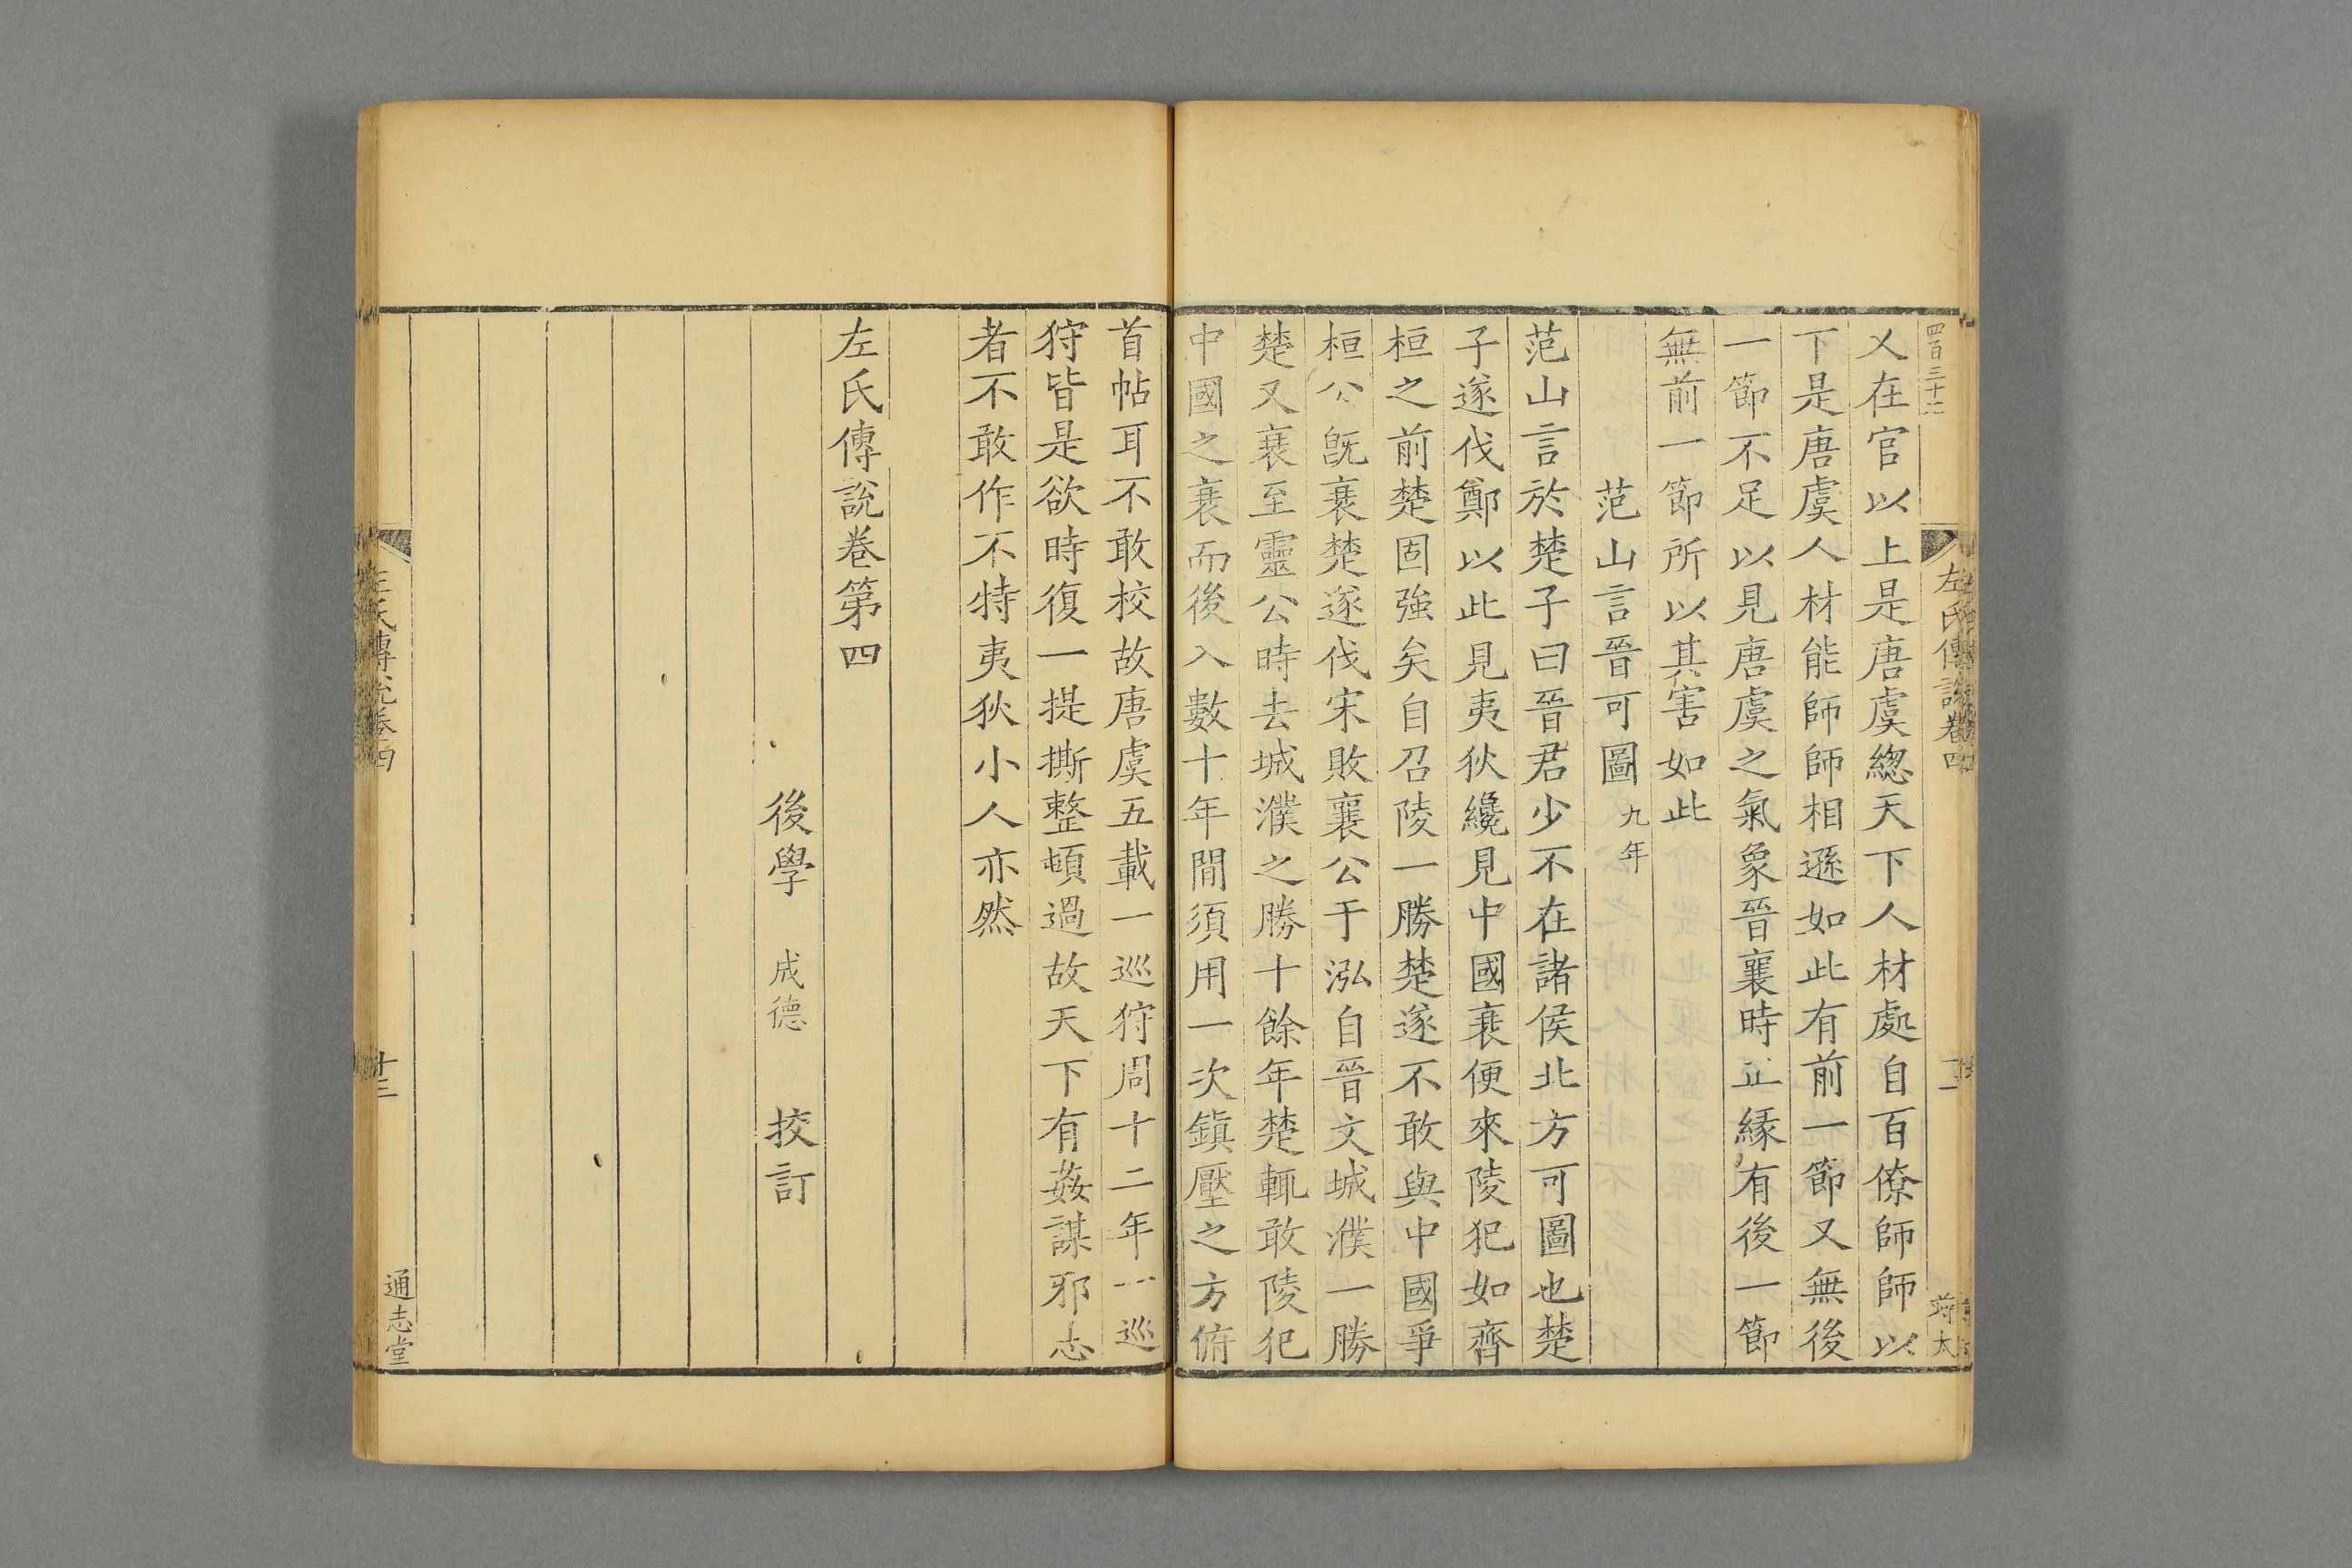 四百三十二
左氏傳說卷四
蒋太
乂在官以上是唐虞緫天下人材處自百僚師師以
下是唐虞人材能師師相遜如此有前一節又無後
一節不足以見唐虞之氣象晉襄時正縁有後一節
無前一節所以其害如此
范山言晉可圖九年
范山言於楚子曰晉君少不在諸侯北方可圖也楚
子遂伐鄭以此見夷狄纔見中國衰便來陵犯如齊
桓之前楚固強矣自召陵一勝楚遂不敢與中國爭
桓公旣衰楚遂伐宋敗襄公于泓自晉文城濮一勝
楚又衰至靈公時去城濮之勝十餘年楚輒敢陵犯
中國之衰而後入數十年間須用一次鎭壓之方俯
首帖耳不敢校故唐虞五載一巡狩周十二年一巡
狩皆是欲時復一提撕整頓過故天下有姦謀邪志
者不敢作不特夷狄小人亦然
左氏傳說卷第四
後學 成德 挍訂
左氏傳說卷四
十三
通志堂